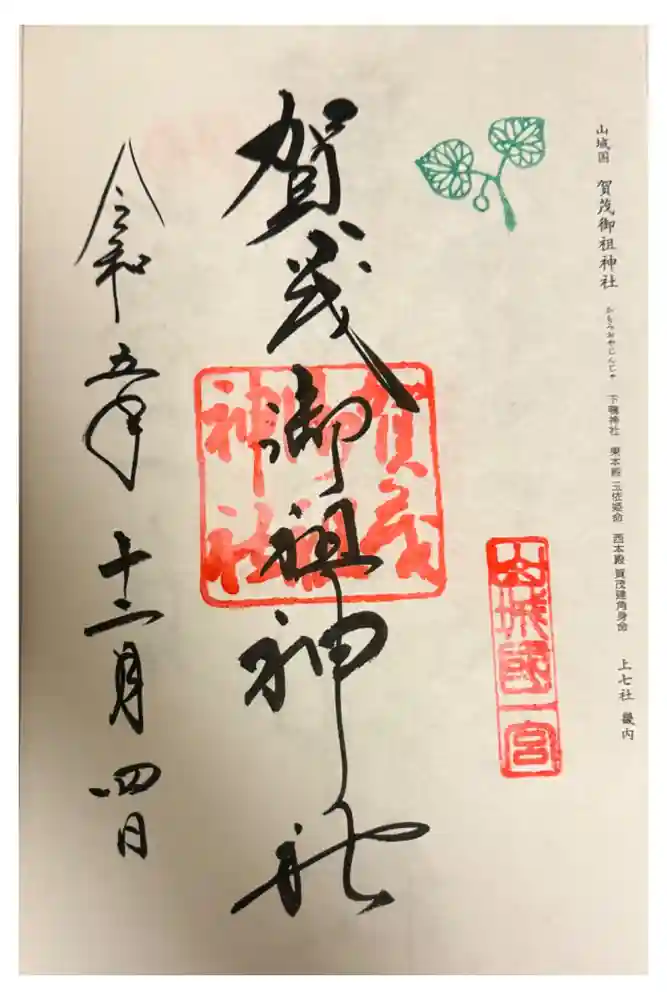 山城国 賀茂御祖神社 かもみおやじんじゃ 下鴨神社 東本殿 玉依姫命 西本殿 賀茂建角身命 上七社 畿内
山城國一宮
賀茂御祖神社
賀茂御祖神社
令和五年 十二月 四日